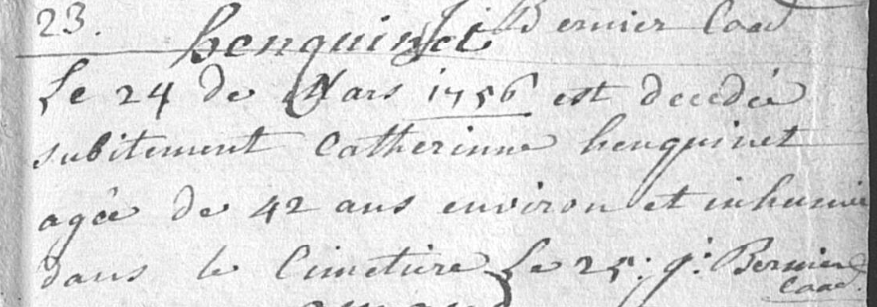 23.
j. Bernier Coad
henquinet
Le 24 de Mars 1756 est decedée
subitement Catherinne henquinet
agée de 42 ans environ et inhumée
dans le Cimetiere Le 25: j. Bernier
Coad.